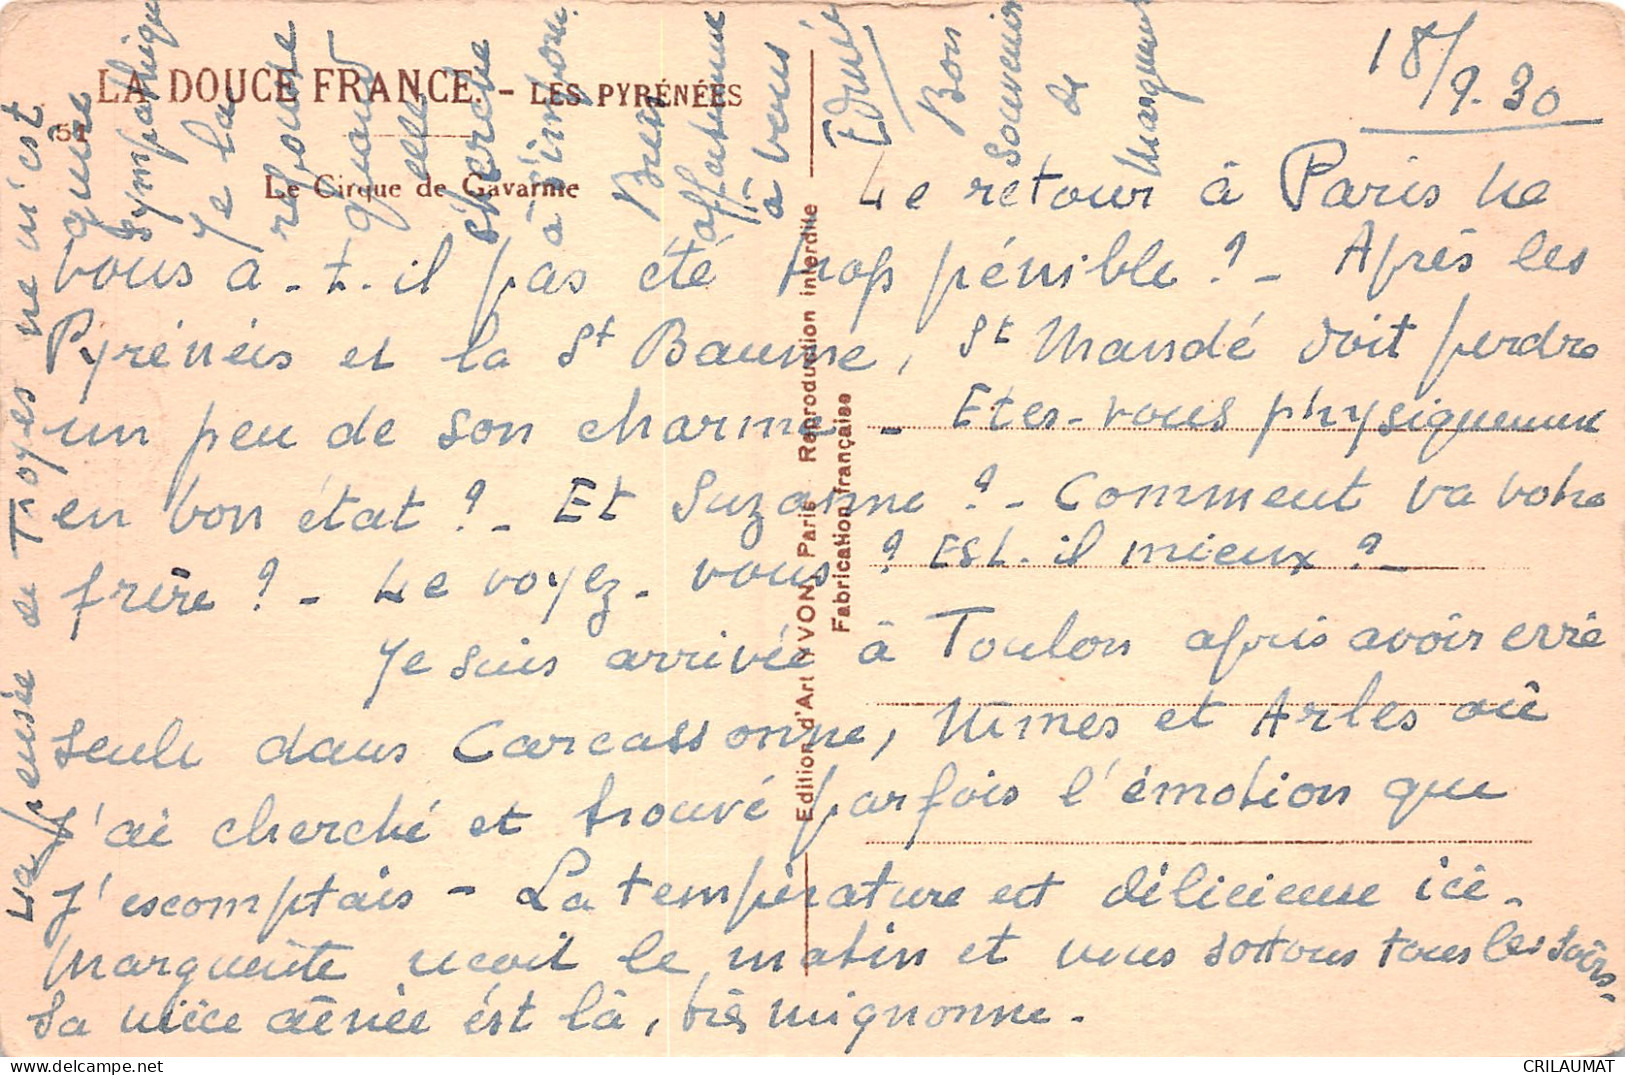 LA DOUCE FRANCE. - LES PYRÉNÉES
54
Le Cirque de Gavarnie
18/9.30
Le retour à Paris ne
vous a-t-il pas été trop pénible ? - Après les
Pyrénées et la St Baume, St Mandé doit perdre
un peu de son charme - Etes-vous physiquement
en bon état ? - Et Suzanne ? - Comment va votre
frère ? - Le voyez-vous ? Est-il mieux ? -
Je suis arrivée à Toulon après avoir erré
seule dans Carcassonne, Nimes et Arles où
j'ai cherché et trouvé parfois l'émotion que
j'escomptais - La température est délicieuse ici -
Marguerite reçoit le matin et nous sortons tous les soirs -
Sa nièce aînée est là, très mignonne -
La pensée de Troyes ne m'est
guère
sympathique
Je la
refoule
quand
elle
cherche
à s'imposer.
Bien
affectueuse
à vous
Edmée
Bon
souvenir
de
Marguerite
Edition d'Art YVON, Paris Reproduction interdite
Fabrication française
CRILAUMAT